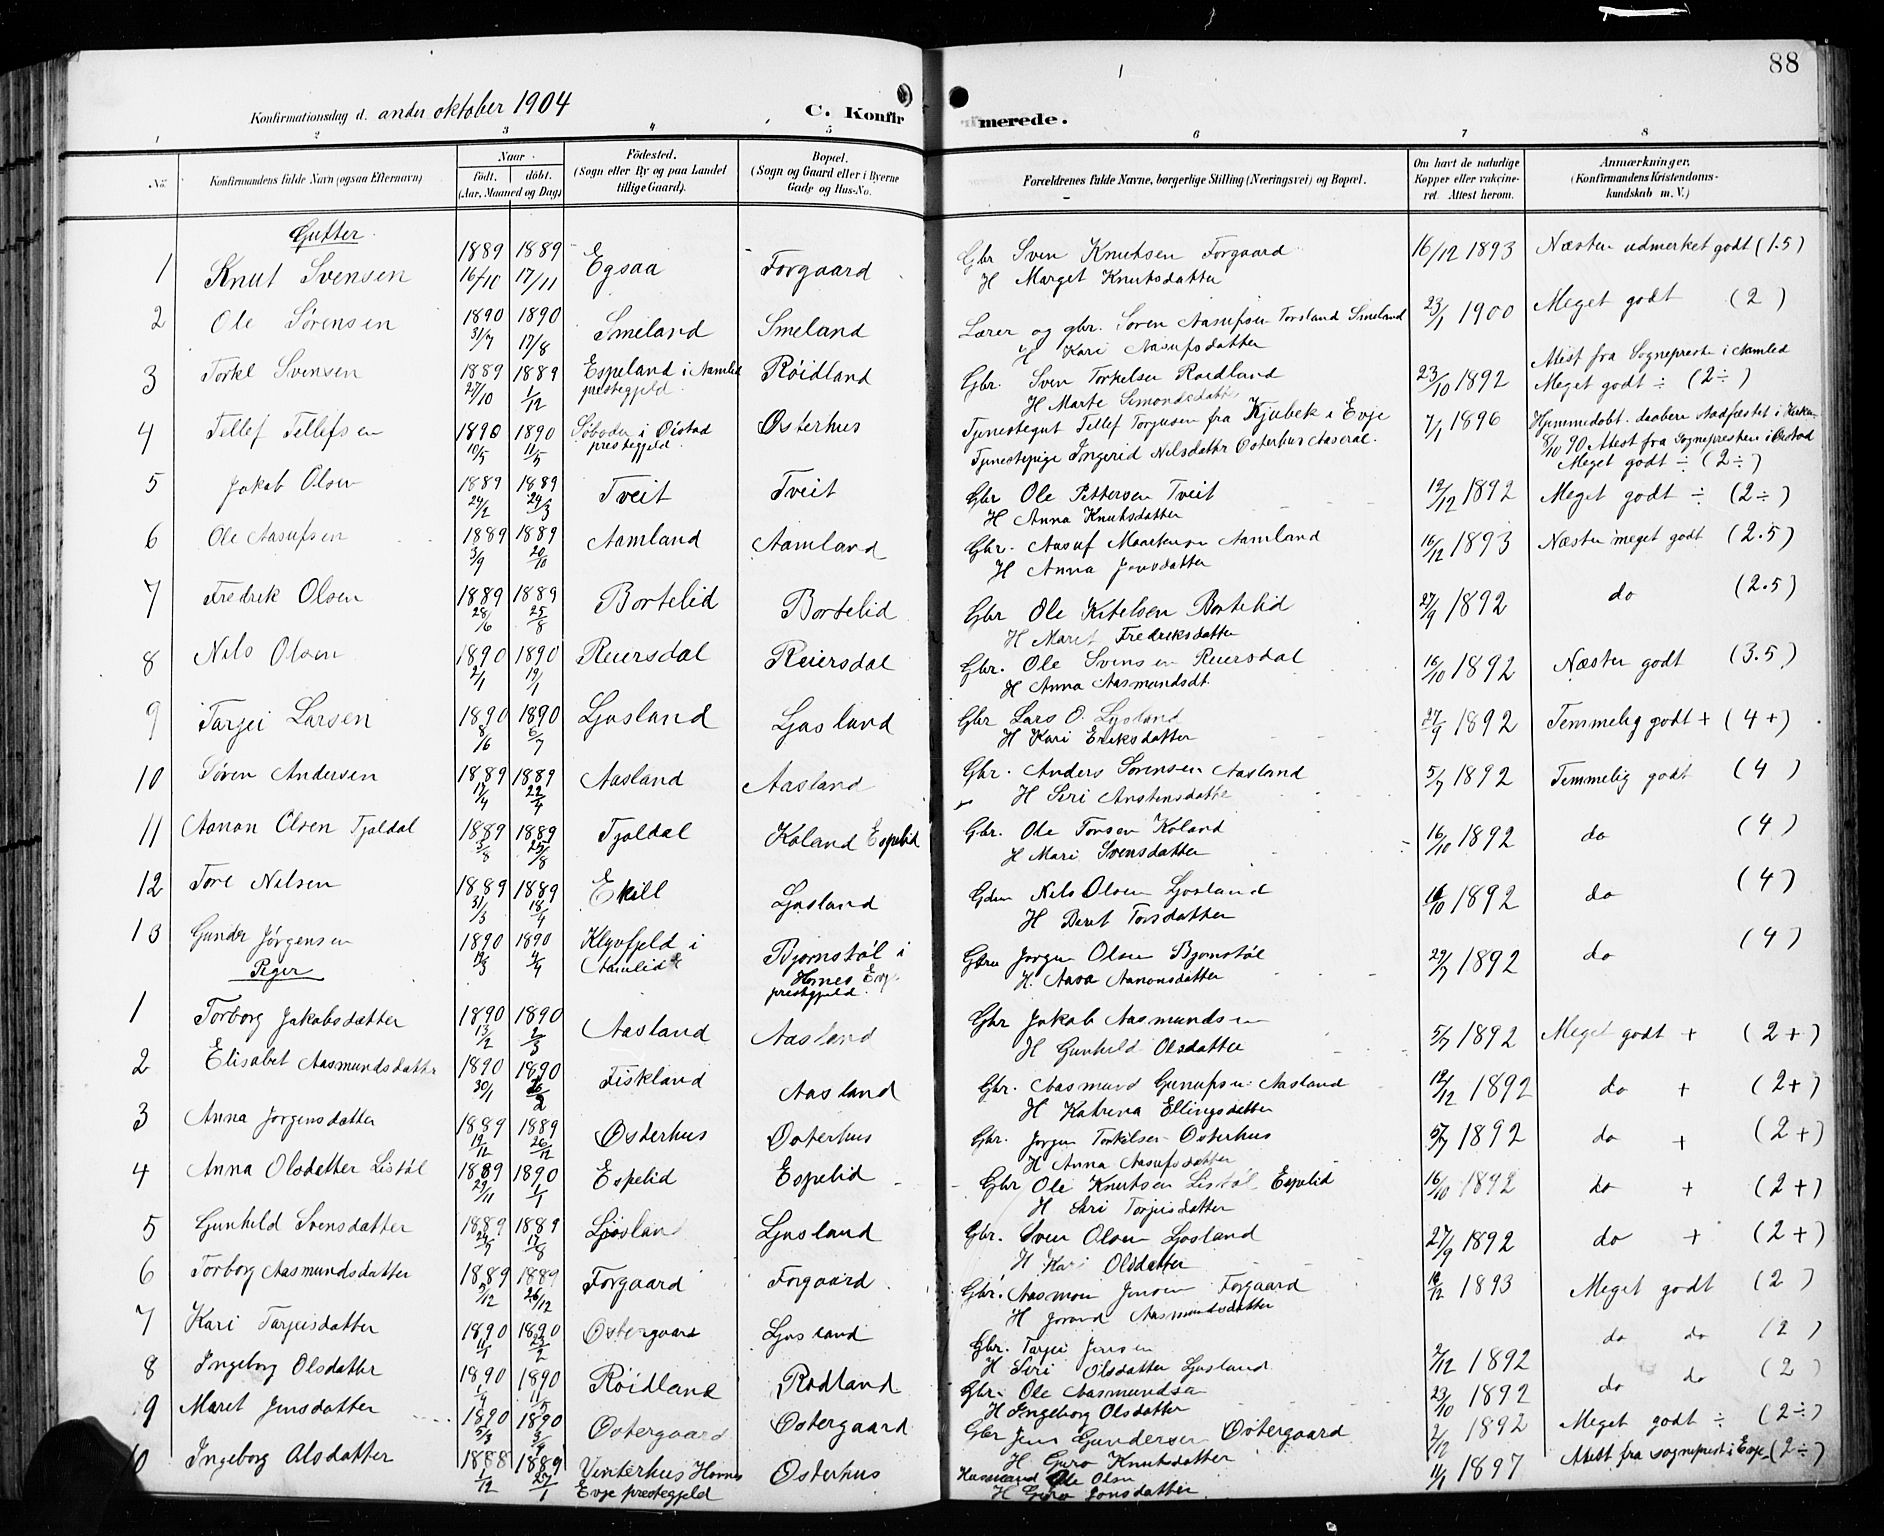 88
Konfirmationsdag d. anden oktober 1904
C. Konfirmerede.
1 2 3 4 5 6 7 8
No.
Konfirmandens fulde Navn (ogsaa Efternavn)
Naar
født. døbt.
(Aar, Maaned og Dag)
Fødested.
(Sogn eller By og paa Landet
tillige Gaard).
Bopæl.
(Sogn og Gaard eller i Byerne
Gade og Hus-No.
Forældrenes fulde Navne, borgerlige Stilling (Næringsvei) og Bopæl.
Om havt de naturlige
Kopper eller vakcine-
ret. Attest herom.
Anmærkninger.
(Konfirmandens Kristendoms-
kundskab m. V.)
Gutter
1 Knut Svensen 1889 16/10 1889 17/11 Egsaa Forgaard Gbr Sven Knutsen Forgaard 16/12 1893 Næsten udmerket godt (1.5)
H Marget Knutsdatter
2 Ole Sørensen 1890 31/7 1890 17/8 Smeland Smeland Lærer og gbr. Søren Aasufsen Torsland Smeland 23/1 1900 Meget godt (2)
H Kari Aasufsdatter
3 Torkel Svensen 1889 27/10 1889 1/12 Espeland i Aamlid prestegjeld Røidland Gbr. Sven Torkelsen Roidland 23/10 1892 Attest fra Sognepresten i Aamlid
Meget godt ÷ (2÷)
H Marte Simondsdatter
4 Tellef Tellefsen 1890 10/5 1890 11/5 i Øistad prestegjeld Østerhus Tjenestegut Tellef Torjusen fra Kjubek i Evje 7/1 1896 Hjemmedøbt. daaben stadfæstet i Kirken
8/10 90 Attest fra Sognepresten i Øistad
Tjenestepige Ingerid Nilsdattr Østerhus Aaseral.
Meget godt ÷ (2÷)
5 Jakob Olsen 1889 24/2 1889 24/3 Tveit Tveit Gbr Ole Pettersen Tveit 12/12 1892 Meget godt ÷ (2÷)
H Anna Knutsdatter
6 Ole Aasufsen 1889 3/9 1889 20/10 Aamland Aamland Gbr. Aasuf Aamland 16/12 1893 Næsten meget godt (2.5)
H Anna Jensdatter
7 Fredrik Olsen 1889 28/6 1889 25/8 Bortelid Bortelid Gbr Ole Ketelsen Bortelid 27/9 1892 do (2.5)
H Maret Fredriksdatter
8 Nils Olsen 1890 2/1 1890 19/1 Reiersdal Reiersdal Gbr. Ole Svensen Reiersdal 16/10 1892 Næsten godt (3.5)
H Anna Aasmundsdt.
9 Tarjei Larsen 1890 8/6 1890 6/7 Ljosland Ljosland Gbr Lars O. Ljosland 27/9 1892 Temmelig godt + (4+)
H Kari Eriksdatter
10 Søren Andersen 1889 17/4 1889 22/4 Aasland Aasland Gbr. Anders Sørensen Aasland 5/7 1892 Temmelig godt (4)
H Siri Anstensdatter
11 Aanon Olsen Tjaldal 1889 3/8 1889 25/8 Tjaldal Koland Espelid Gbr. Ole Tonsen Koland 16/10 1892 do (4)
H Mari Svensdatter
12 Tore Nilsen 1889 31/3 1889 18/4 Ekill Ljosland Gdm Nils Olsen Ljosland 16/10 1892 do (4)
H Beret Torsdatter
13 Gunder Jørgensen 1890 12/3 1890 4/4 Klyvfjeld i Aamlid Bjornstøl i Hornes Evje prestegjeld Jørgen Olsen Bjornstøl 29/7 1892 do (4)
H. Aasa Aanonsdatter
Piger
1 Torborg Jakobsdatter 1890 13/2 1890 2/3 Aasland Aasland Gbr Jakob Aasmundsen 5/7 1892 Meget godt + (2+)
H Gunhild Olsdatter
2 Elisabet Aasmundsdatter 1890 30/1 1890 16/2 Fiskland Aasland Gbr. Aasmund Gunufsen Aasland 12/12 1892 do + (2+)
H Katrina Ellingsdatter
3 Anna Jørgensdatter 1889 12/12 1889 26/12 Østerhus Østerhus Gbr. Jørgen Torkilsen Osterhus 5/7 1892 do + (2+)
H Anna Aasufsdatter
4 Anna Olsdatter Listøl 1889 29/11 1890 1/1 Espelid Espelid Gbr Ole Knutsen Listøl Espelid 16/10 1892 do + (2+)
H Siri Torjusdatter
5 Gunhild Svensdatter 1889 24/5 1889 17/8 Ljosland Ljosland Gbr. Sven Olsen Ljosland 27/9 1892 do + (2+)
H Kari Olsdatter
6 Torborg Aasmundsdatter 1889 5/12 1889 26/12 Forgaard Forgaard Gbr. Aasmon Jensen Forgaard 16/12 1893 Meget godt (2)
H Jorand Aasmundsdatter
7 Kari Tarjeisdatter 1890 11/1 1890 23/2 Ostergaard Ljosland Gbr. Tarjei Jensen 2/12 1892 do do (2)
H Siri Olsdatter Ljosland
8 Ingeborg Olsdatter 1890 1/4 1890 11/5 Røidland Rødland Gbr. Ole Aasmundsen 23/10 1892 do do (2)
H Ingeborg Olsdatter
9 Maret Jensdatter 1890 5/3 1890 3/4 Østergaard Østergaard Gbr Jens Gundersen Østergaard 2/12 1892 Meget godt ÷ (2÷)
H Guro Knutsdatter
10 Ingeborg Olsdatter 1888 1/12 1889 27/1 Vinterhus Hornes Evje prestegjeld Østerhus Husmand Ole Olsen 11/1 1897 Attest fra sogneprest i Evje (2÷)
H Guro Jonsdatter